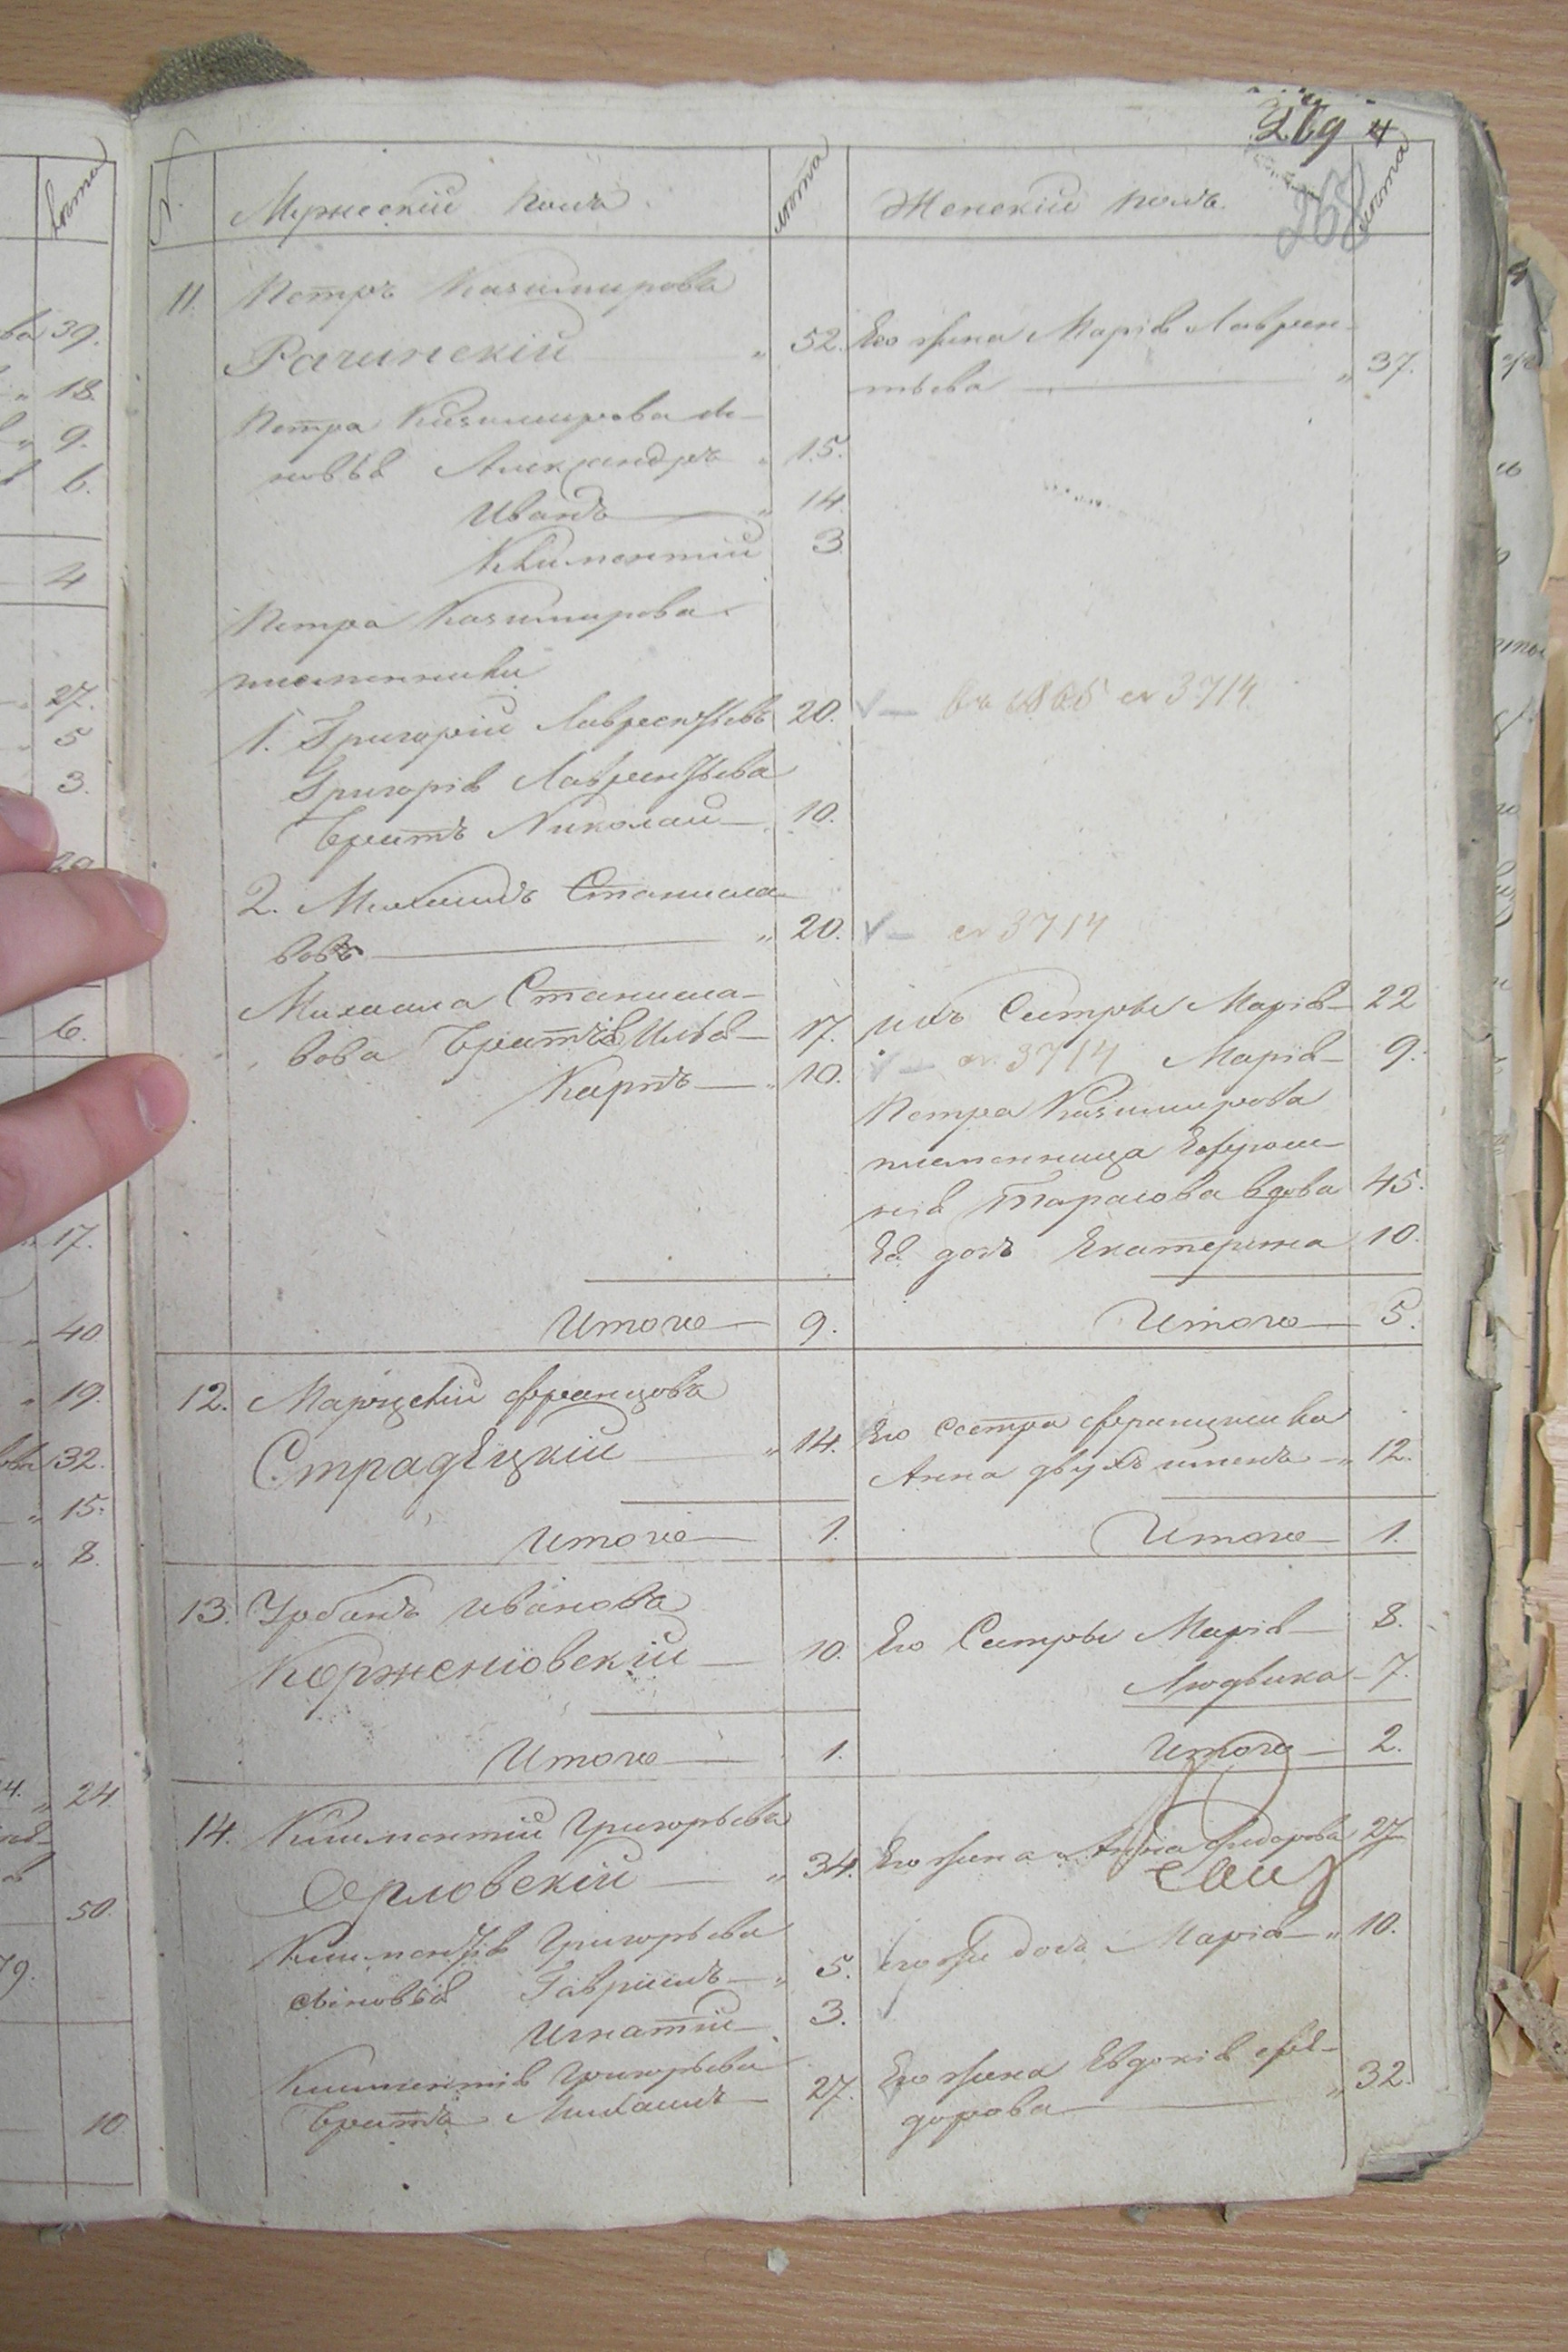 269 4
268
№ Мужескій полъ. лѣта Женскій полъ. лѣта
11. Петръ Казимирова
Рачинскій " 52. Его жена Марія Лаврен-
тьева " 37.
Петра Казимирова сы-
новья Александръ " 15.
Иванъ " 14.
Климентій 3.
Петра Казимирова
племянники
1. Григорій Лаврентьевъ 20. в 1865 ст 3714
Григорія Лаврентьева
братъ Николай 10.
2. Михаилъ Станисла-
вовъ " 20. ст 3714
Михаила Станисла-
вова братья Илья 17. ихъ сестры Марія 22
Карпъ 10. ст 3714 Марія 9.
Петра Казимирова
племянница Ефроси-
нія Тарасова вдова 45.
Ея дочь Екатерина 10.
Итого 9. Итого 5.
12. Марцелій Францова
Страдецкій " 14. Его сестра Францишка
Анна двухъ именъ " 12.
Итого 1. Итого 1.
13. Урбанъ Иванова
Корженіовскій 10. Его сестры Марія 8.
Людвика 7.
Итого 1. Итого 2.
14. Климентій Григорьева
Орловскій " 34. Его жена Анна Фидорова 27
Климентія Григорьева
сыновья Гавріилъ " 5. его же дочь Марія " 10.
Игнатій 3.
Климентія Григорьева
братъ Михаилъ 27. Его жена Евдокія Фе-
дорова " 32.
39.
" 18.
" 9.
6.
4
27.
5
3.
6.
17.
" 40
" 19.
32.
" 15.
" 8.
" 24
50.
10